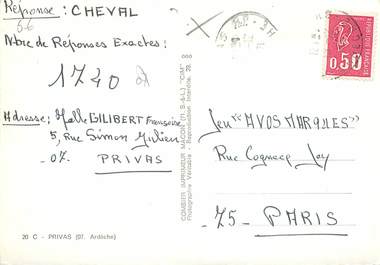 Réponse : CHEVAL
66
Nbre de Réponses Exactes :
1740
Adresse : Melle GILIBERT Françoise
5, Rue Simon Julien
07. PRIVAS
20 C - PRIVAS (07. Ardèche)
COMBIER IMPRIMEUR MACON (71. S.-&-L.) "CIM"
Photographie Véritable - Reproduction Interdite.
REPUBLIQUE FRANÇAISE
0,50
Jeu "A VOS MARQUES"
Rue Cognacq Jay
-75- PARIS